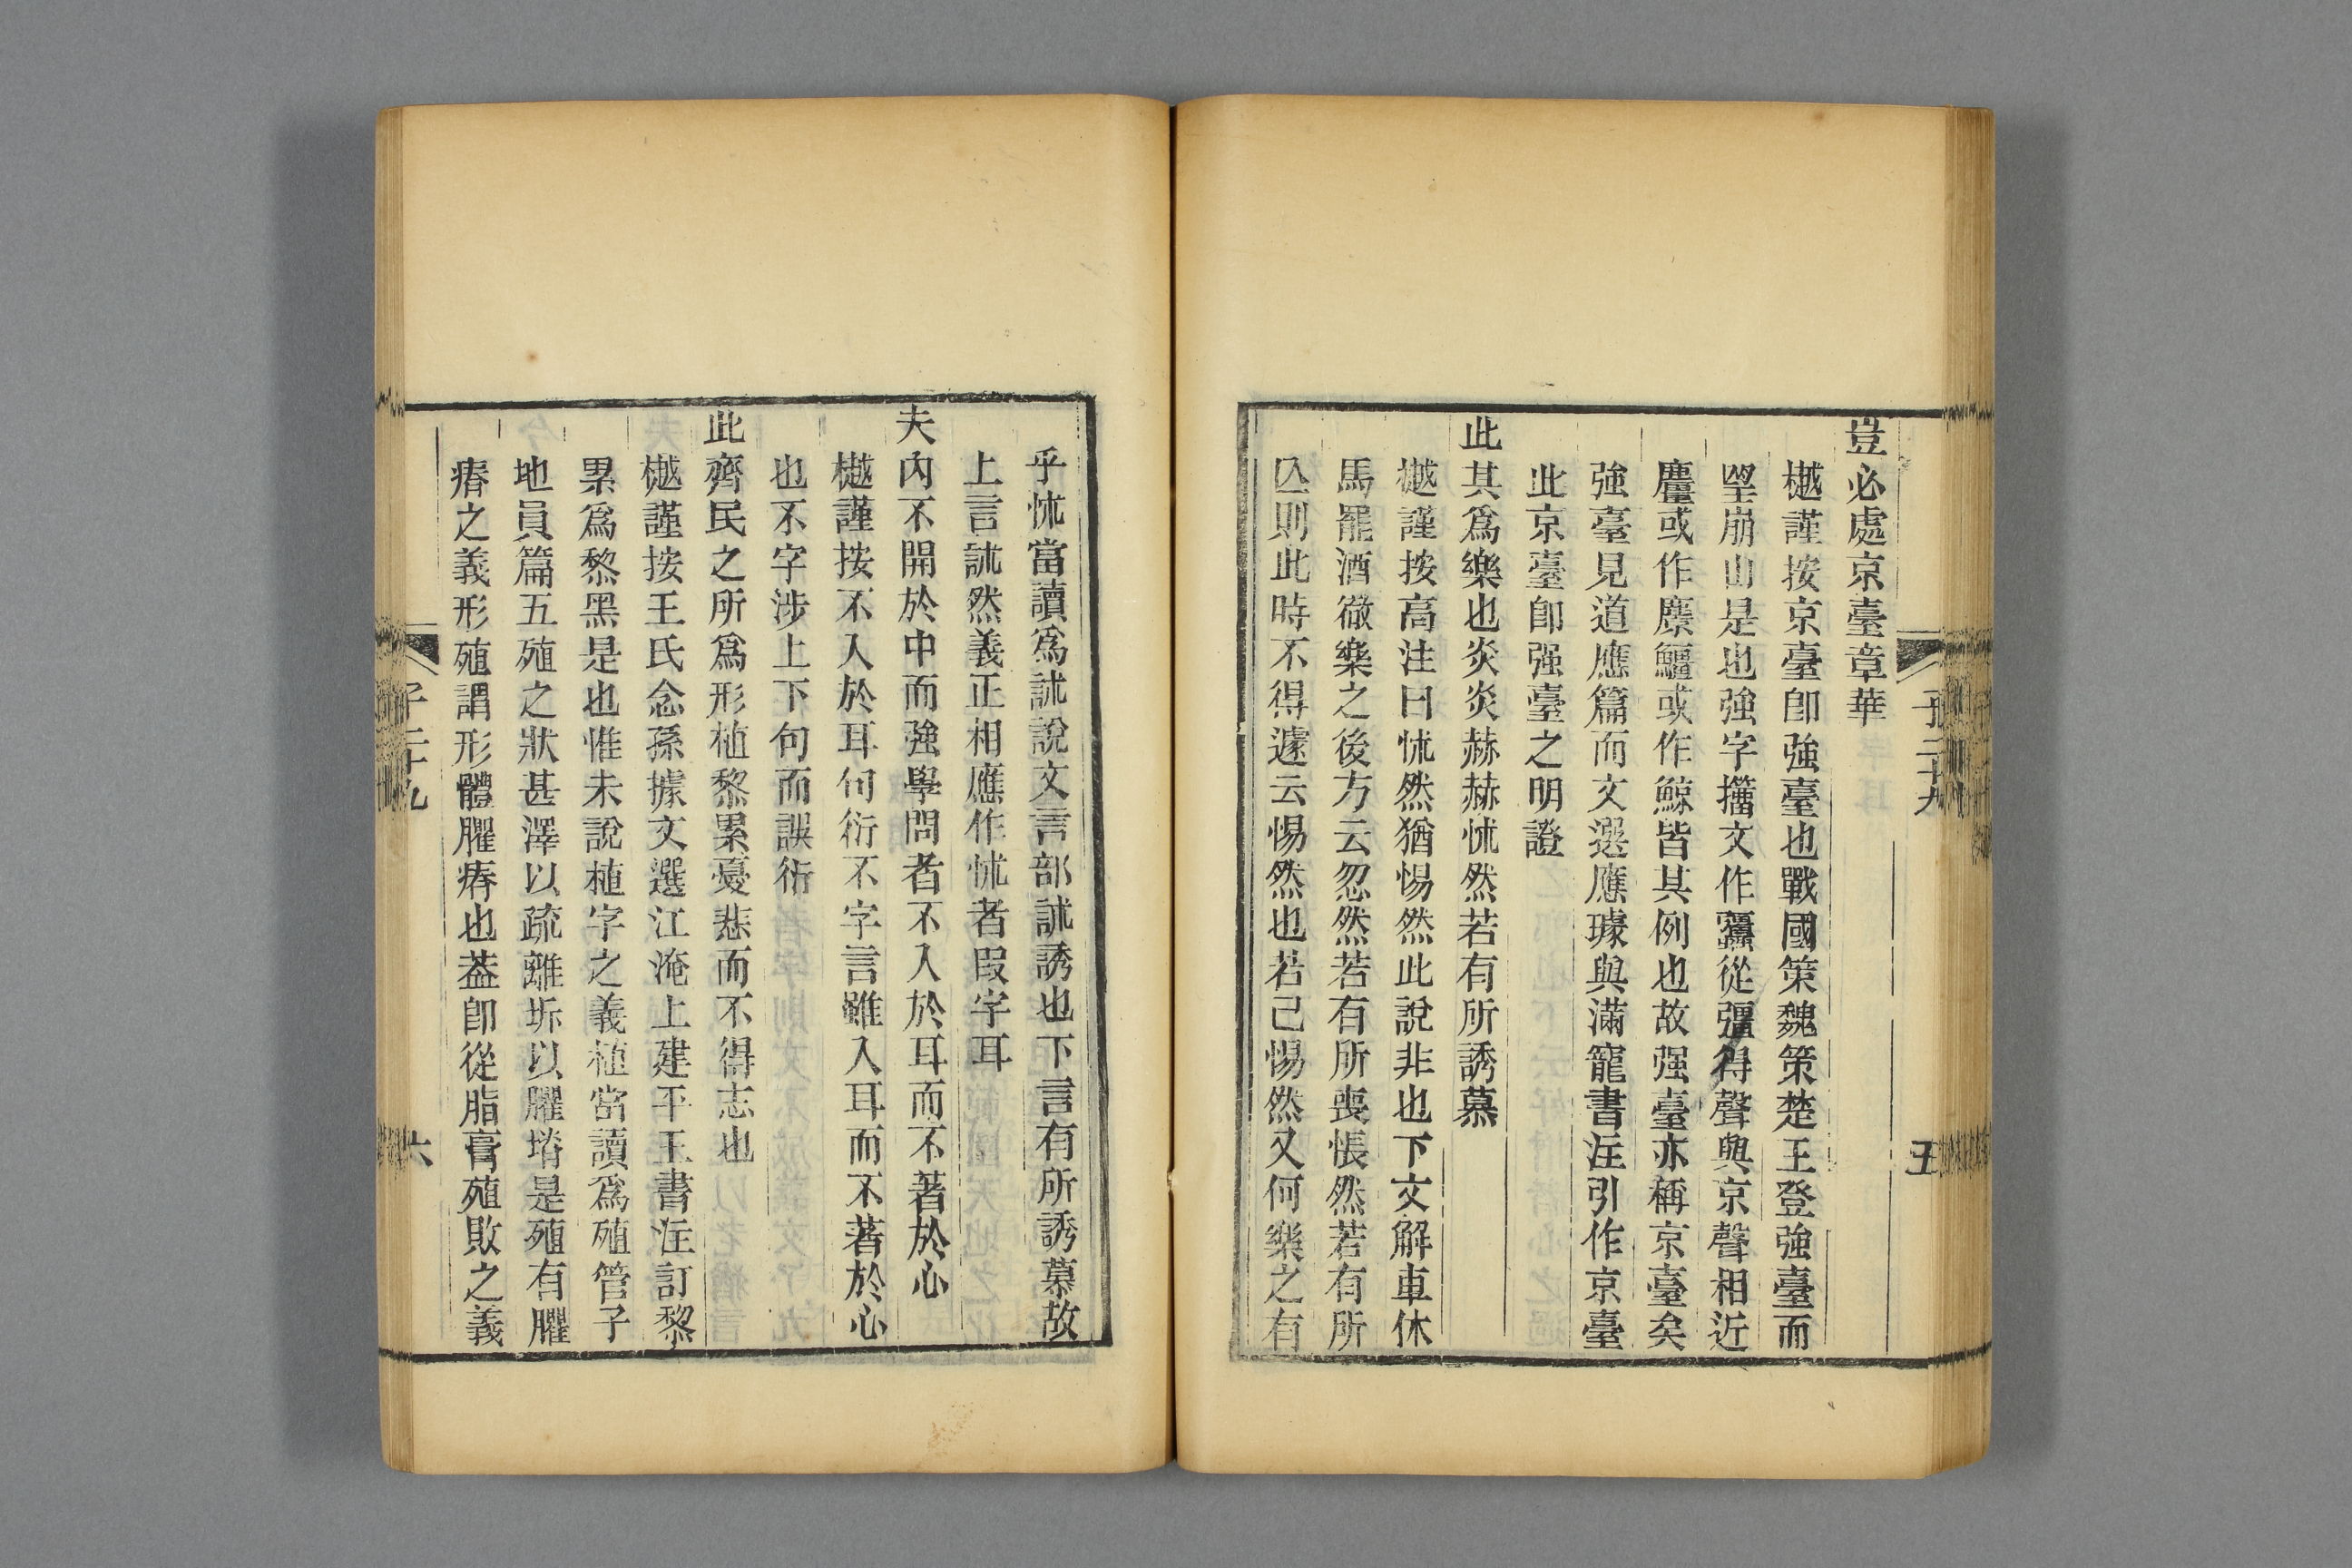 豈必處京臺章華
樾謹按京臺卽強臺也戰國策魏策楚王登強臺而
望崩山是也強字籀文作彊從彊得聲與京聲相近
麠或作麖鱷或作鯨皆其例也故强臺亦稱京臺矣
強臺見道應篇而文選應璩與滿寵書注引作京臺
此京臺卽强臺之明證
此其爲樂也炎炎赫赫怵然若有所誘慕
樾謹按高注曰怵然猶惕然此說非也下文解車休
馬罷酒徹樂之後方云忽然若有所喪悵然若有所
亾則此時不得遽云惕然也若已惕然又何樂之有
子二十九
五
乎怵當讀爲訹說文言部訹誘也下言有所誘慕故
上言訹然義正相應作怵者叚字耳
夫內不開於中而強學問者不入於耳而不著於心
樾謹按不入於耳句衍不字言雖入耳而不著於心
也不字涉上下句而誤衍
此齊民之所爲形植黎累憂悲而不得志也
樾謹按王氏念孫據文選江淹上建平王書注訂黎
累爲黎黑是也惟未說植字之義植當讀爲殖管子
地員篇五殖之狀甚澤以疏離坼以臞塉是殖有臞
瘠之義形殖謂形體臞瘠也葢卽從脂膏殖敗之義
子二十九
六